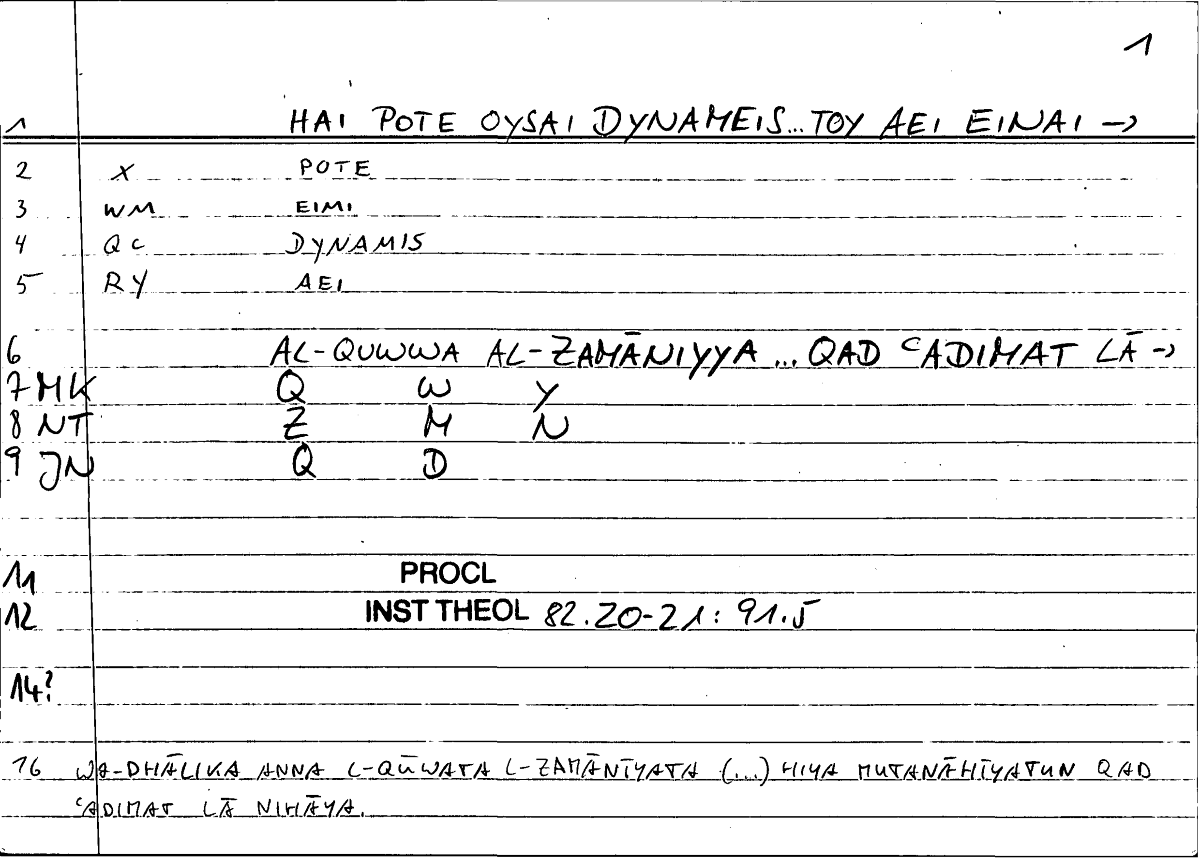 1
1 HAI POTE OYSAI DYNAMEIS...TOY AEI EINAI →
2 X POTE
3 WM EIMI
4 QC DYNAMIS
5 RY AEI
6 AL-QUWWA AL-ZAMĀNIYYA ... QAD ʿADIMAT LĀ →
7 MK Q W Y
8 NT Z M N
9 JN Q D
11 PROCL
12 INST THEOL 82.20-21: 91.5
14?
16 WA-DHĀLIKA ANNA L-QŪWATA L-ZAMĀNĪYATA (...) HIYA MUTANĀHĪYATUN QAD
ʿADIMAT LĀ NIHĀYA.